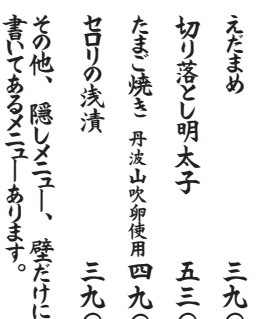 えだまめ 三九〇
切り落とし明太子 五三〇
たまご焼き 丹波山吹卵使用 四九〇
セロリの浅漬 三九〇
その他、隠しメニュー、壁だけに
書いてあるメニューあります。